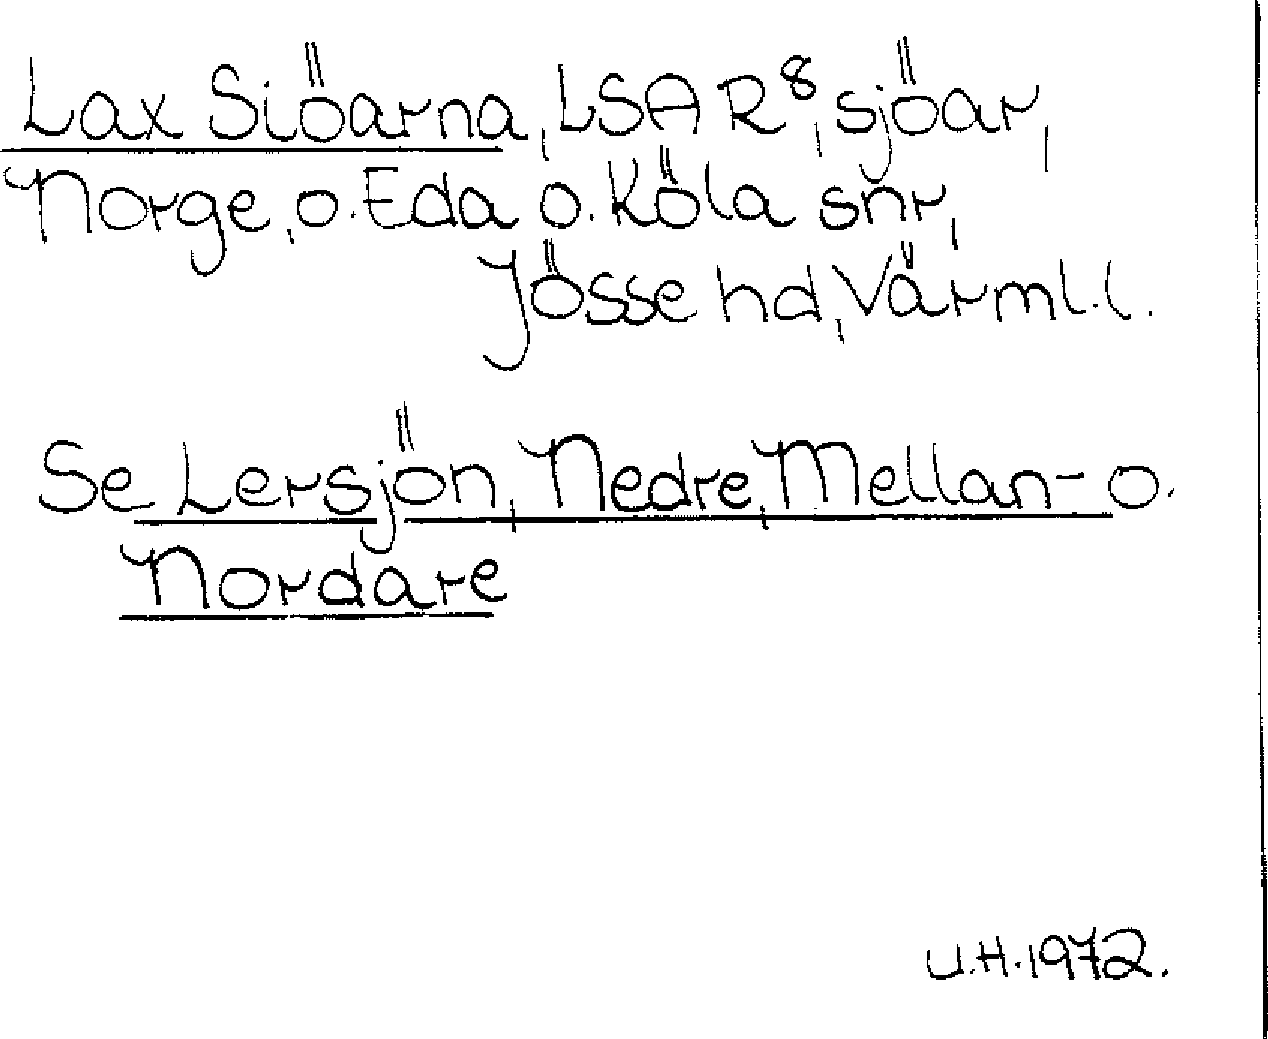 Lax Siöarna, LSA R⁸, sjöar,
Norge, o. Eda o. Köla snr,
Jösse hd, Värml. l.
Se Lersjön, Nedre, Mellan- o.
Nordare
U.H. 1972.